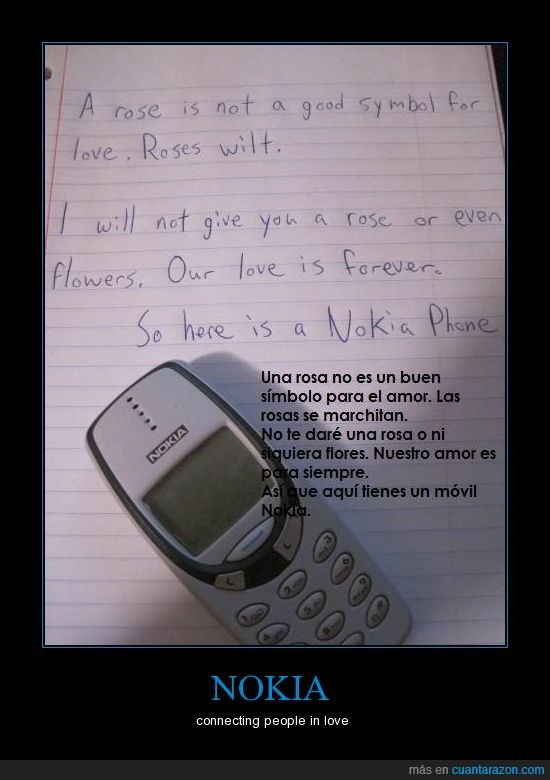 A rose is not a good symbol for
love. Roses wilt.
I will not give you a rose or even
flowers. Our love is forever.
So here is a Nokia Phone
Una rosa no es un buen
símbolo para el amor. Las
rosas se marchitan.
No te daré una rosa o ni
siquiera flores. Nuestro amor es
para siempre.
Así que aquí tienes un móvil
Nokia.
NOKIA
C
C
1
2
3
4
5
6
8
9
#
NOKIA
connecting people in love
más en cuantarazon.com